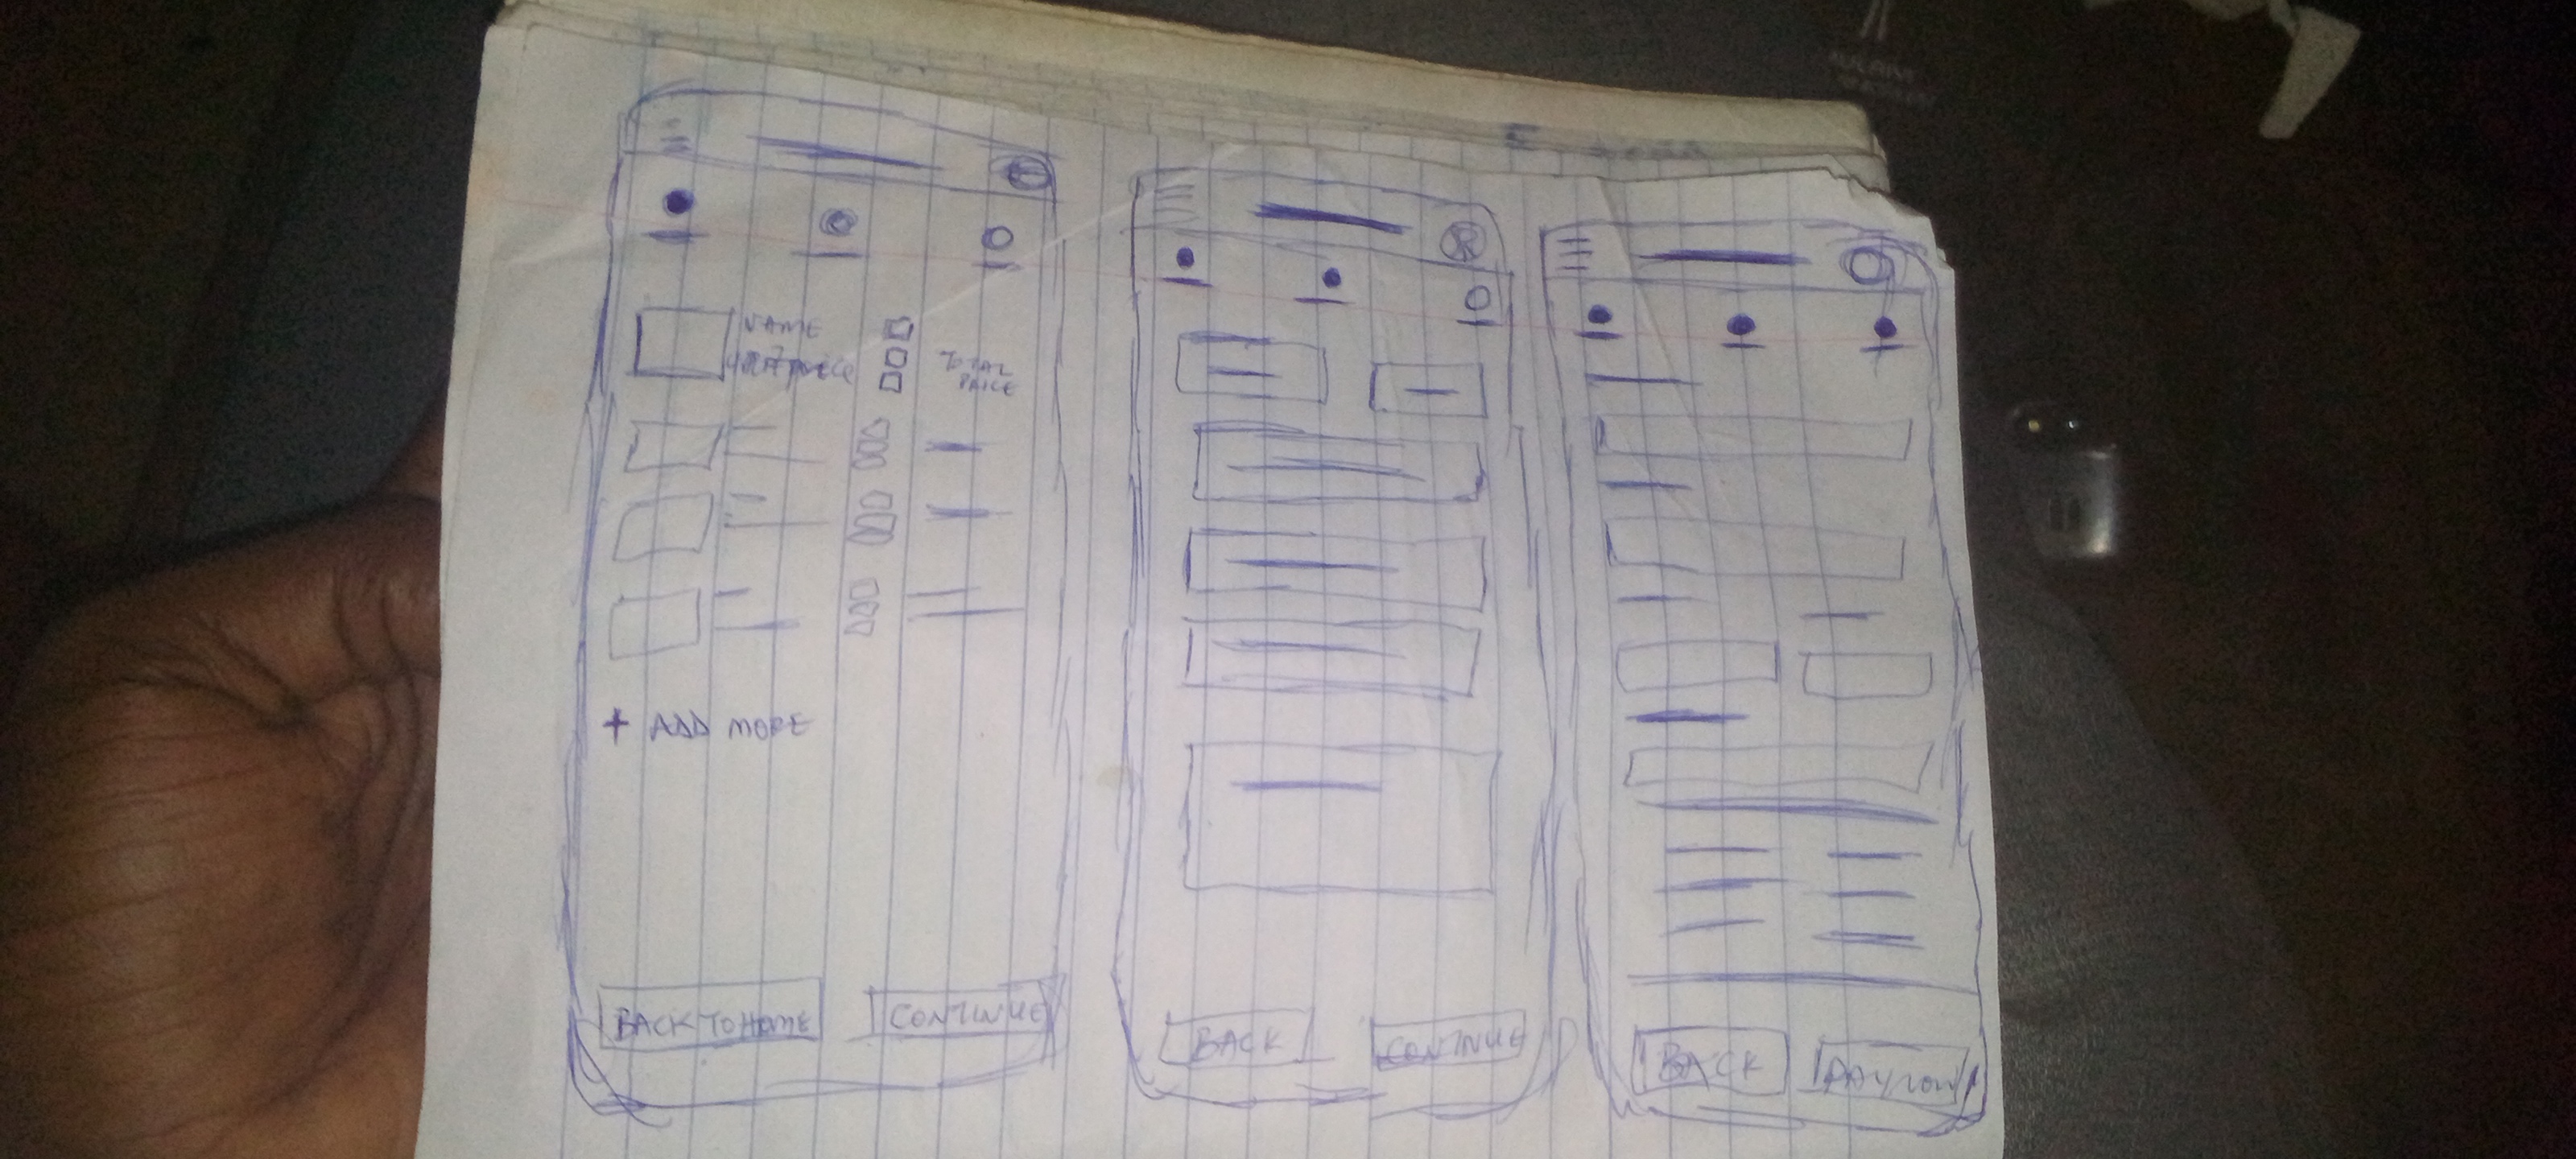 NAME
TOTAL
PRICE
+ ADD MORE
BACK TO HOME
CONTINUE
BACK
CONTINUE
BACK
PAY NOW